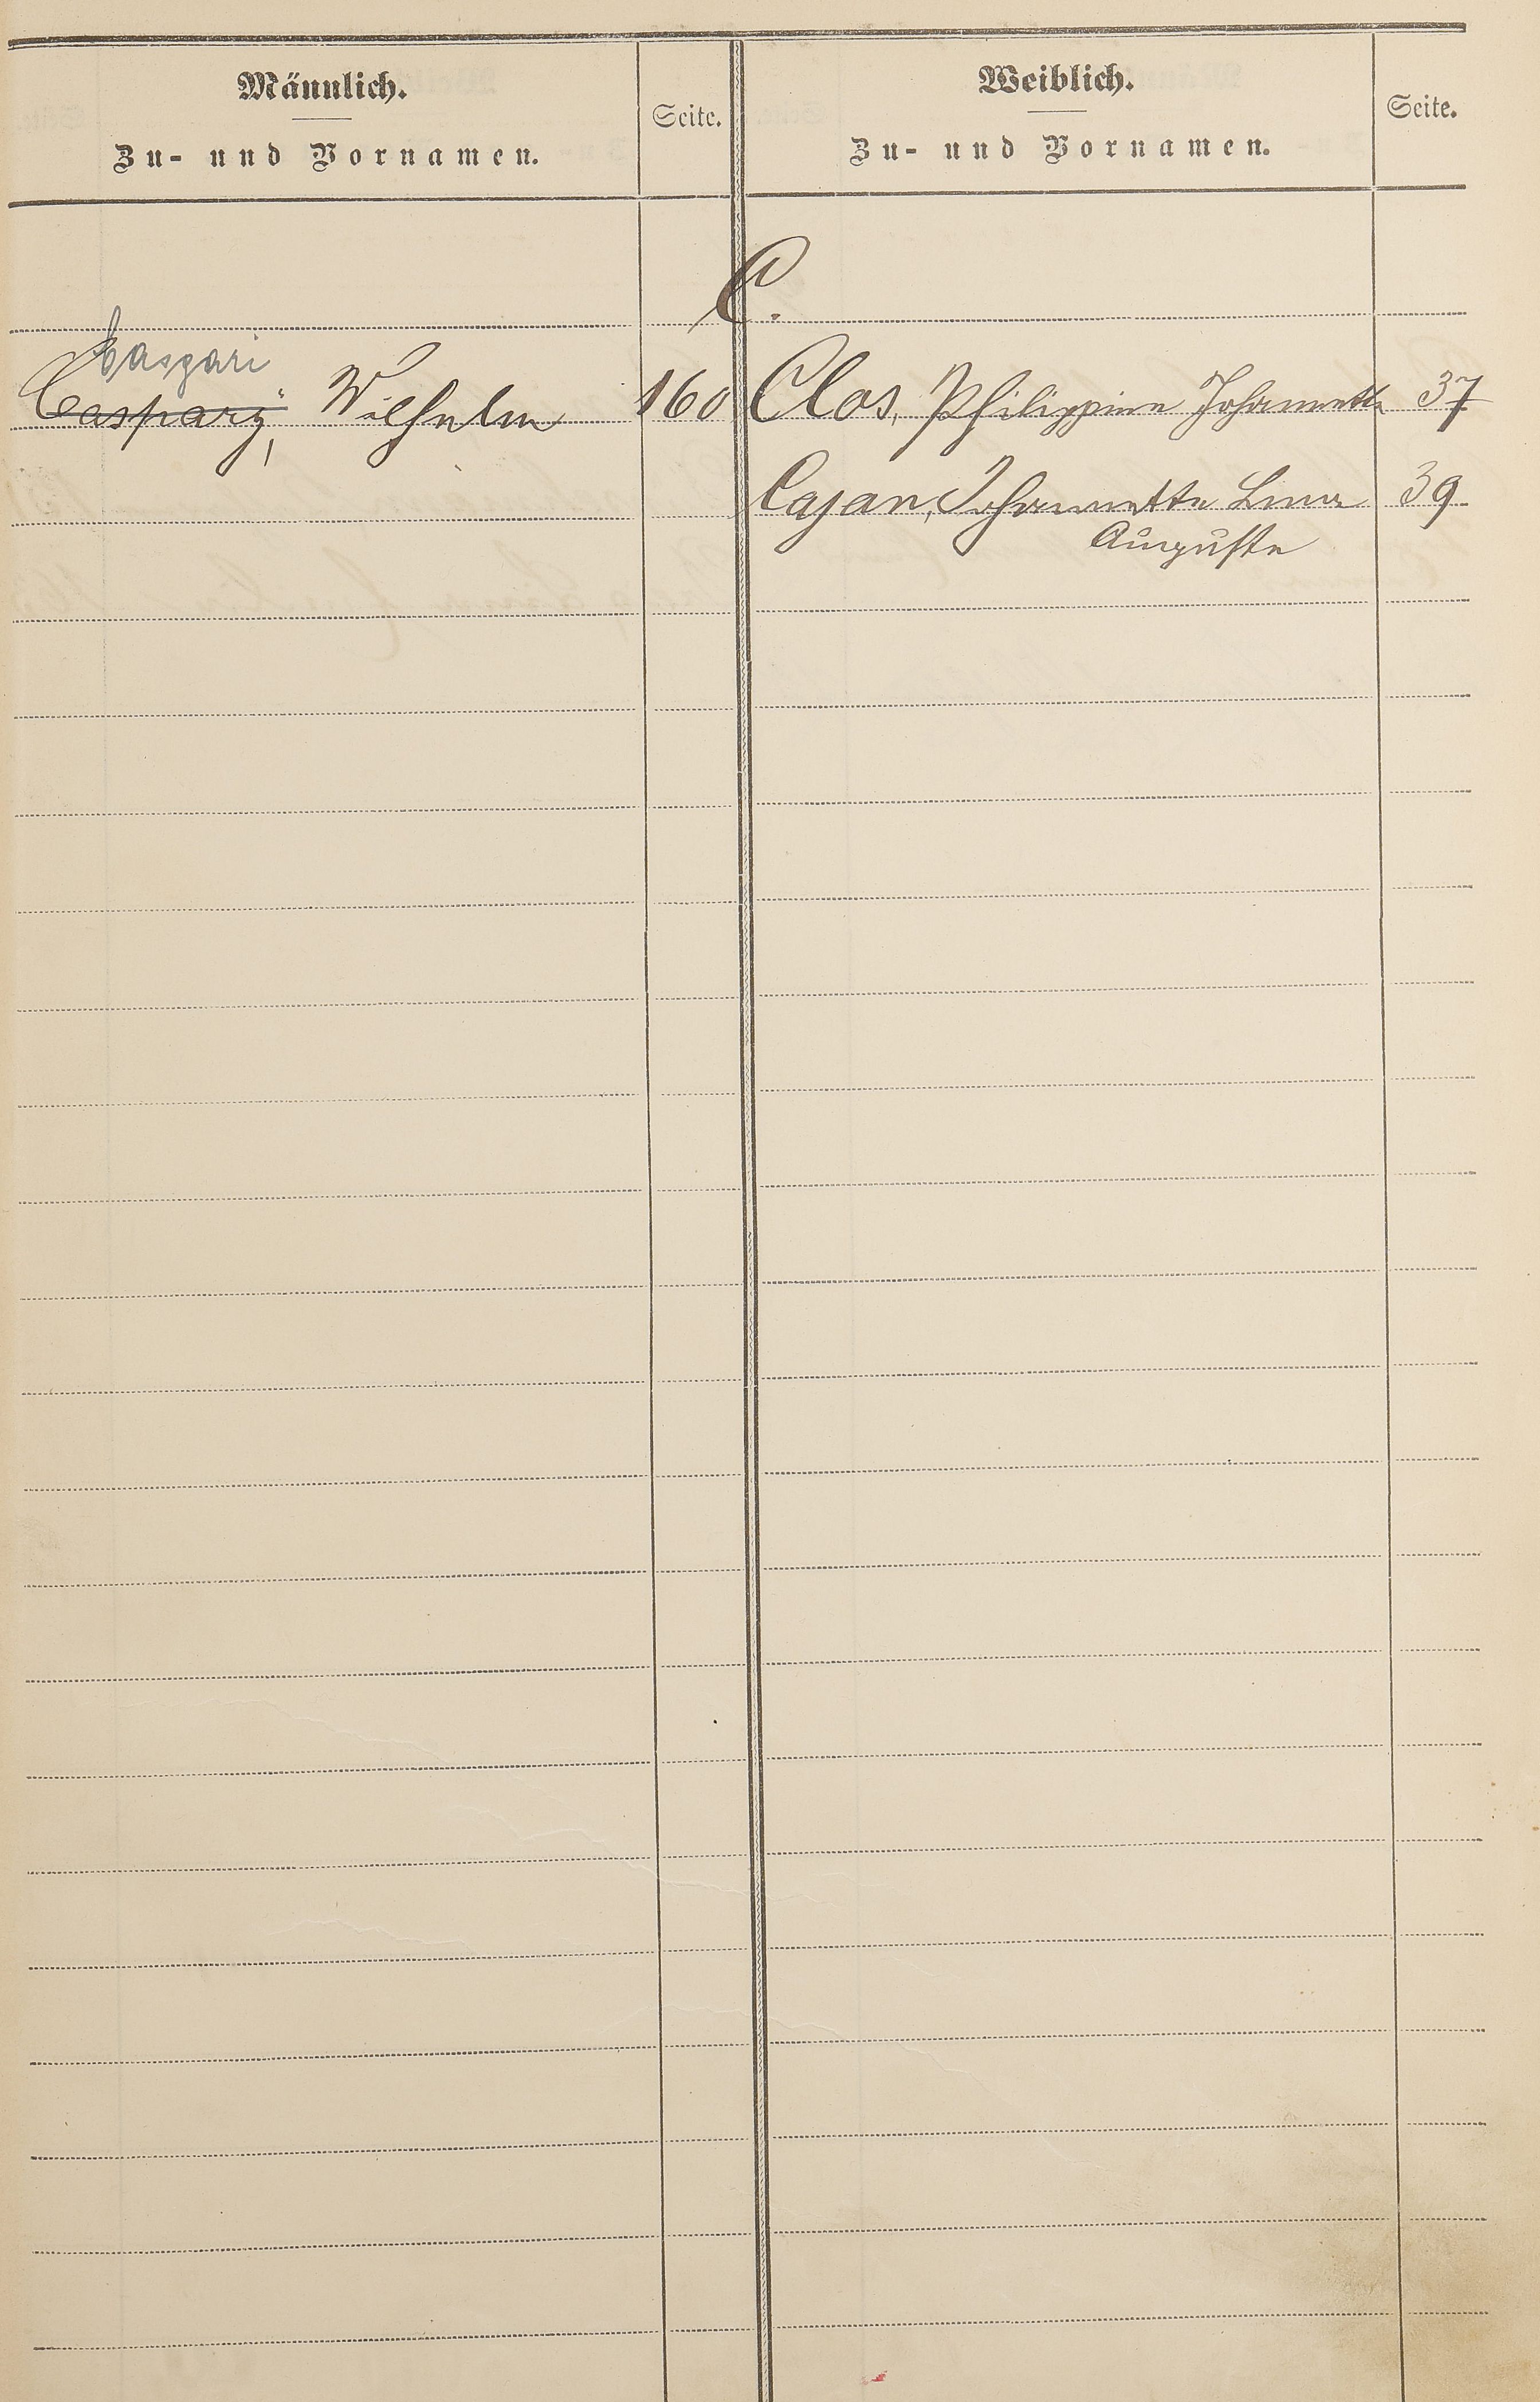 Männlich.
Zu- und Vornamen.
Seite.
Weiblich.
Zu- und Vornamen.
Seite.
C.
Caspari
Casparÿ, Wilhelm 160
Clos, Philippine Johannette 37
Cajan, Johannette Lina 39
Auguste